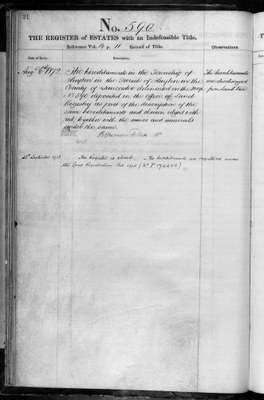 21
No. 590
THE REGISTER of ESTATES with an Indefeasible Title.
Reference Vol. p. 11 Record of Title.
Observations
Date of Entry.
Description.
Augt 6th 1872
The hereditaments in the Township of
in the Parish of in the
County of delineated in the Map
No 590 deposited in the Office of Land
Registry as part of the description of the
same hereditaments and thereon edged with
red, together with the mines and minerals
under the same.
The hereditaments
are discharged
from Land Tax
September
The Register is closed. The hereditaments are registered under
the Land Registration Act